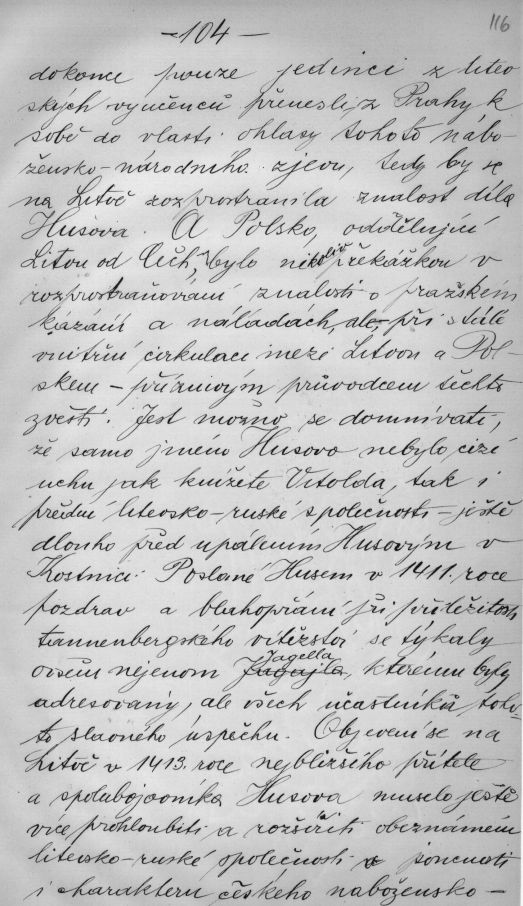 116
- 104 -
dokonce pouze jedinci z litev
ských vyučenců přenesli, z Prahy k
sobě do vlasti ohlasy tohoto nábo-
žensko-národního zjevu, tedy by se
na Litvě rozprostranila znalost díla
Husova. A Polsko, oddělující
Litvu od Čech, bylo nikoliv překážkou v
rozprostraňování znalosti o pražském
kázání a náladách, ale, při stálé
vnitřní cirkulaci mezi Litvou a Pol-
skem - příznivým průvodcem těchto
zvěstí. Jest možno se domnívati,
že samo jméno Husovo nebylo cizí
uchu jak knížete Vitolda, tak i
přední litevsko-ruské společnosti - ještě
dlouho před upálením Husovým v
Kostnici. Poslané Husem v 1411. roce
pozdrav a blahopřání při příležitosti
tannenbergského vítězství se týkaly
Jagella
ovšem nejenom Jagajla, kterému byly
adresovány, ale všech účastníků toho-
to slavného úspěchu. Objevení se na
Litvě v 1413. roce nejbližšího přítele
a spolubojovníka Husova muselo ještě
více prohloubiti a rozšířiti obeznámení
litevsko-ruské společnosti s
i charakteru českého nábožensko-